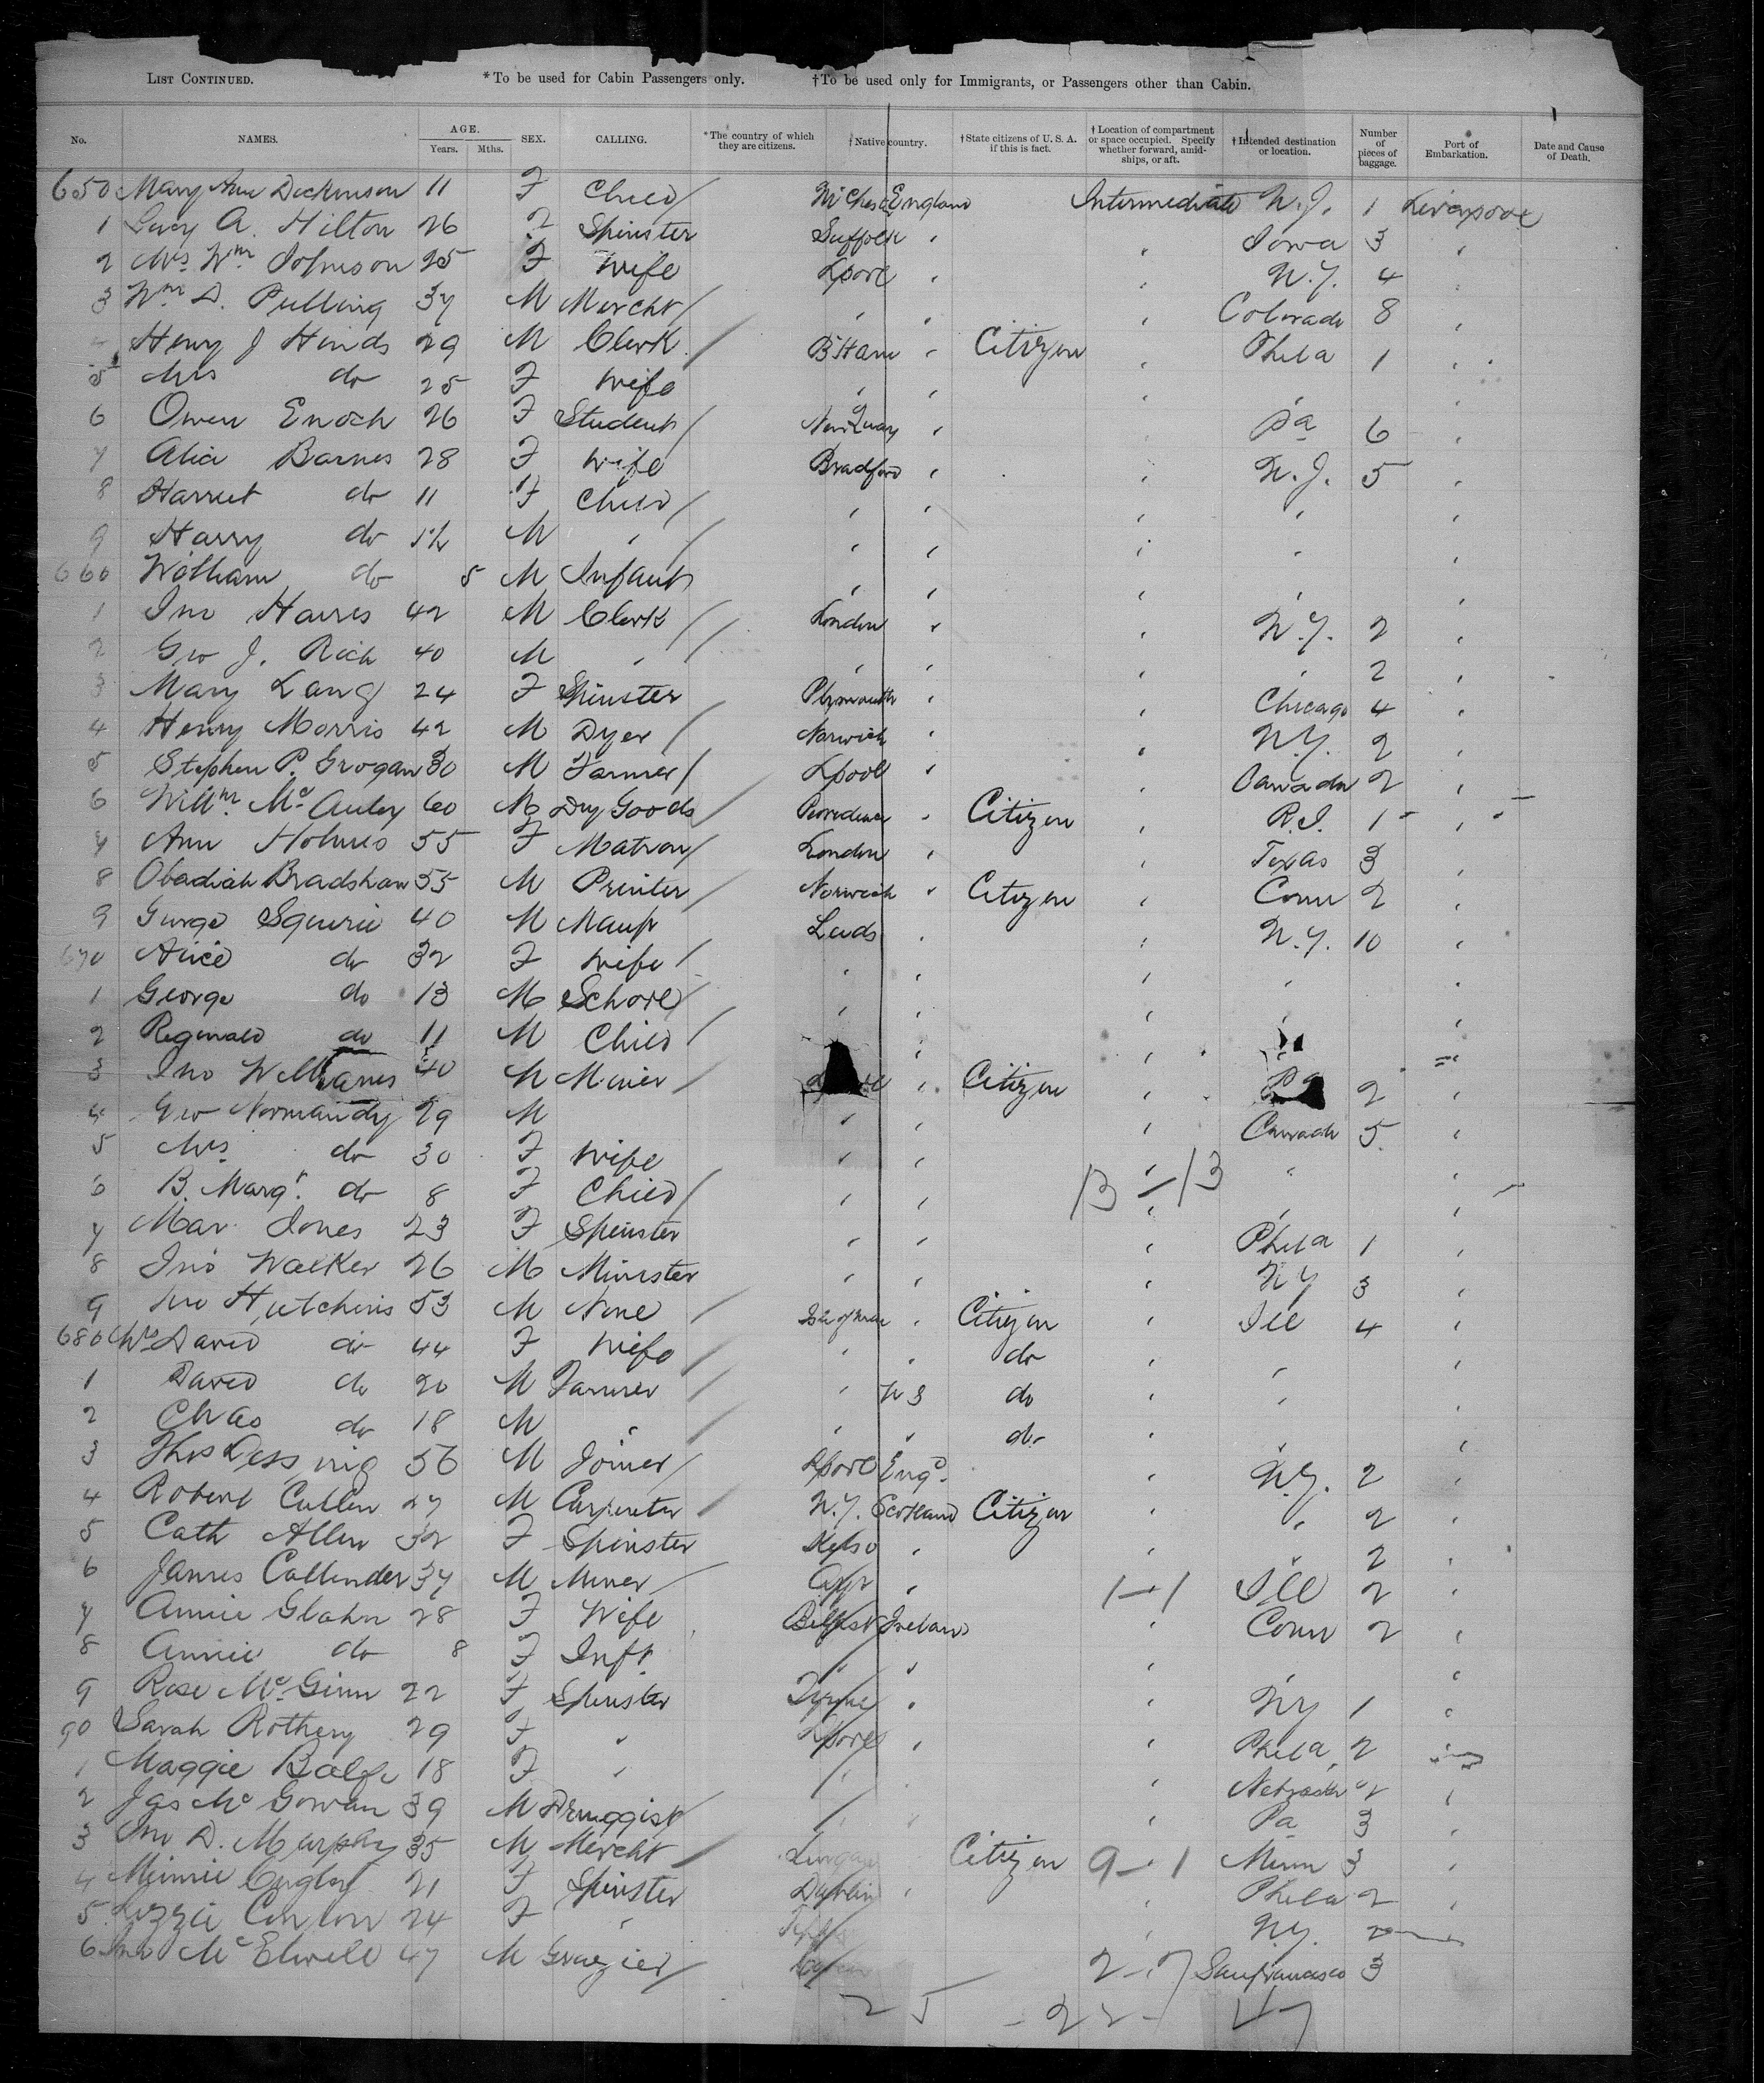 List Continued. *To be used for Cabin Passengers only. †To be used only for Immigrants, or Passengers other than Cabin.
No. NAMES. AGE. Years. Mths. SEX. CALLING. *The country of which they are citizens. †Native country. †State citizens of U. S. A. if this is fact. †Location of compartment or space occupied. Specify whether forward, amidships, or aft. †Intended destination or location. Number of pieces of baggage. Port of Embarkation. Date and Cause of Death.
650 Mary Ann Dickinson 11 F Child England Intermediate N.J. 1 Liverpool
1 Lucy A. Hilton 26 F Spinster Suffolk " " Iowa 3 "
2 Mrs Wm Johnson 25 F Wife Lpool " " N.Y. 4 "
3 Wm D. Pulling 37 M Mercht " " " Colorado 8 "
4 Henry J Hinds 29 M Clerk B'Ham " Citizen " Phila 1 "
5 Mrs do 25 F Wife " " " "
6 Owen Enoch 26 F Student New Quay " " Pa 6 "
7 Alice Barnes 28 F Wife Bradford " " N.J. 5 "
8 Harriet do 11 F Child " " " " "
9 Harry do 1½ M " " " " " "
660 William do 5 M Infant " " " " "
1 Jno Harris 42 M Clerk London " " N.Y. 2 "
2 Geo J. Rich 40 M " " " " " 2 "
3 Mary Lang 24 F Spinster Plymouth " " Chicago 4 "
4 Henry Morris 42 M Dyer Norwich " " N.Y. 2 "
5 Stephen P. Grogan 30 M Farmer Lpool " " Canada 2 "
6 Willm McAuley 60 M Dry Goods Providence " Citizen " R.I. 1 "
7 Ann Holmes 55 F Matron London " " Texas 3 "
8 Obadiah Bradshaw 55 M Printer Norwich " Citizen " Conn 2 "
9 George Squirie 40 M Manfr Leeds " " N.Y. 10 "
670 Alice do 32 F Wife " " " " "
1 George do 13 M School " " " " "
2 Reginald do 11 M Child " " "
3 Jno Williams 40 M Miner " Citizen " Pa 2 "
4 Geo Normandy 29 M " " " Canada 5 "
5 Mrs do 30 F Wife " " " " "
6 B. Margt. do 8 F Child " " 13-13 " " "
7 Mar Jones 23 F Spinster " " " Phila 1 "
8 Jno Walker 26 M Minister " " " NY 3 "
9 Jno Hutchins 53 M None Isle of Man " Citizen " Ill 4 "
680 Mrs David do 44 F Wife " " do " " "
1 David do 20 M Farmer " U S do " " "
2 Chas do 18 M " " " do " "
3 Thos 56 M Joiner Lpool Engd. " N.Y. 2 "
4 Robert Cullen 27 M Carpenter N.Y. Scotland Citizen " " 2 "
5 Cath Allen 32 F Spinster Kelso " " " 2 "
6 James Callender 37 M Miner Ayr " 1-1 Ill 2 "
7 Annie Glahn 28 F Wife Belfast Ireland " Conn 2 "
8 Annie do 8 F Inft. " " " "
9 Rose McGinn 22 F Spinster Tyrone " " NY 1 "
90 Sarah Rothery 29 F " Lpool " " Phila 2 "
1 Maggie Balfe 18 F " " " " Nebraska 2 "
2 Jas McGowan 39 M Druggist " " " Pa 3 "
3 Jno D. Murphy 35 M Mercht Lurgan Citizen 9-1 Minn 3 "
4 Minnie 21 F Spinster Dublin " " Phila 2 "
5 Lizzie Conlon 24 F " " N.Y. 2
6 Jno McElwell 47 M Grazier 2-7 San francisco 3
25 - 22 - 47